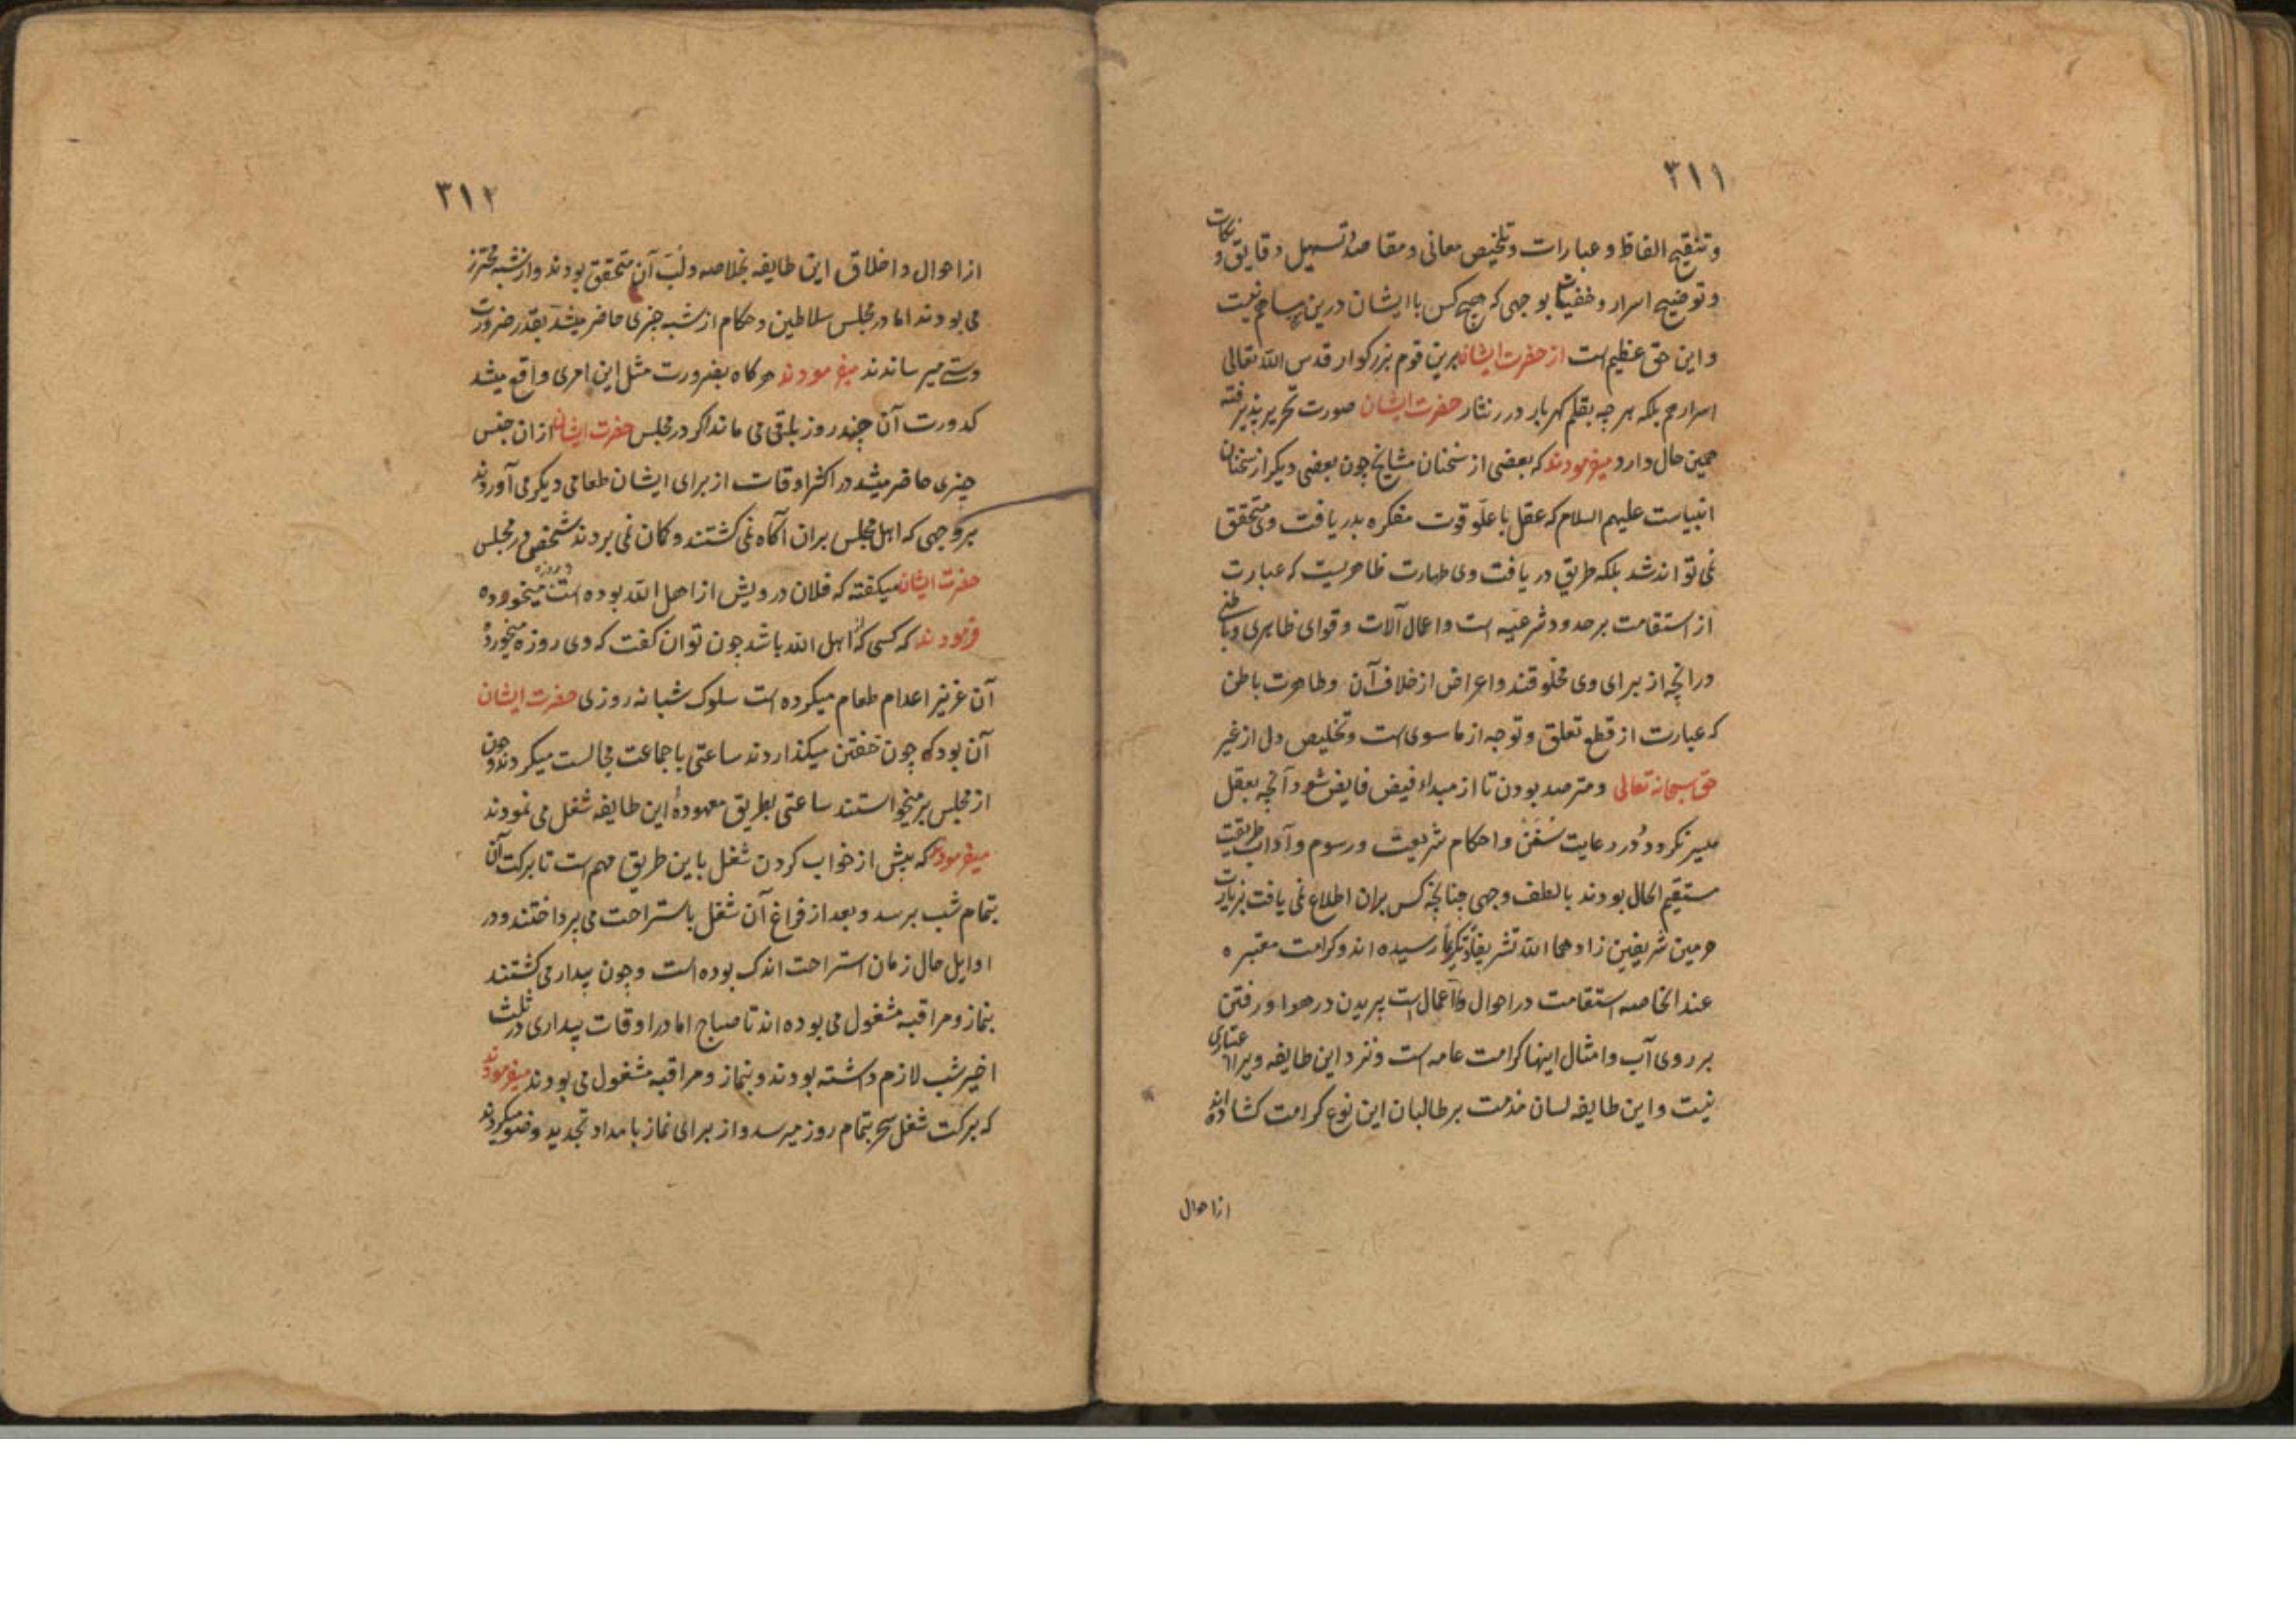 ۳۱۱
وتنقیح الفاظ و عبارات وتلخیص معانی ومقاصد وتسهیل دقایق و نکات
وتوضیح اسرار وخفیات بوجهی که هیچ کس با ایشان درین مساهم نیست
واین حق عظیم است از حضرت ایشان برین قوم بزرکوار قدس الله تعالی
اسرارهم بلکه هر چه بقلم کهربار درر نثار حضرت ایشان صورت تحریر پذیرفته
همین حال دارد میفرمودند که بعضی از سخنان مشایخ چون بعضی دیکر از سخنان
انبیاست علیهم السلام که عقل با علو قوت مفکره بدریافت وی متحقق
نمی تواند شد بلکه طریق دریافت وی طهارت ظاهریست که عبارت
از استقامت بر حدود شرعیه است واعمال آلات وقوای ظاهری وباطنی
درانچه از برای وی مخلوقند واعراض از خلاف آن وطاهرت باطن
که عبارت از قطع تعلق وتوجه از ما سوی است وتخلیص دل از غیر
حق سبحانه تعالی ومترصد بودن تا از مبداء فیض فایض شود آنچه بعقل
میسر نکردد ودر رعایت سنن واحکام شریعت ورسوم وآداب طریقت
مستقیم الحال بودند بالطف وجهی چنانچه کس بران اطلاع نمی یافت بزیارت
حرمین شریفین زادهما الله تشریفا وتکریما رسیده اند وکرامت معتبره
عند الخاصه استقامت در احوال واعمال است پریدن در هوا ورفتن
بر روی آب وامثال اینها کرامت عامه است ونزد این طایفه ویرا اعتباری
نیست واین طایفه لسان مذمت بر طالبان این نوع کرامت کشاده اند
از احوال
۳۱۲
از احوال واخلاق این طایفه بخلاصه ولب آن متحقق بودند واز شبه محترز
می بودند اما در مجلس سلاطین وحکام از شبه چیزی حاضر میشد بقدر ضرورت
دستی میرساندند میفرمودند هرکاه بضرورت مثل این امری واقع میشد
کدورت آن چند روز باقی می ماند اکر در مجلس حضرت ایشان ازان جنس
چیزی حاضر میشد در اکثر اوقات از برای ایشان طعامی دیکر می آوردند
بر وجهی که اهل مجلس بران آکاه نمی کشتند وکان نمی بردند شخصی در مجلس
حضرت ایشان میکفته که فلان درویش از اهل الله بوده است و روزه میخورده
فرمودند که کسی که از اهل الله باشد چون توان کفت که وی روزه میخورده
آن عزیز اعدام طعام میکرده است سلوک شبانه روزی حضرت ایشان
آن بود که چون خفتن میکذاردند ساعتی با جماعت مجالست میکردند وچون
از مجلس برمیخواستند ساعتی بطریق معهوده این طایفه شغل می نمودند
میفرمودند که پیش از خواب کردن شغل باین طریق مهم است تا برکت آن
بتمام شب برسد وبعد از فراغ آن شغل باستراحت می پرداختند ودر
اوایل حال زمان استراحت اندک بوده است وچون بیدار می کشتند
بنماز ومراقبه مشغول می بوده اند تا صباح اما در اوقات بیداری در ثلث
اخیر شب لازم داشته بودند وبنماز ومراقبه مشغول می بودند میفرمودند
که برکت شغل سحر بتمام روز میرسد واز برای نماز بامداد تجدید وضو میکردند